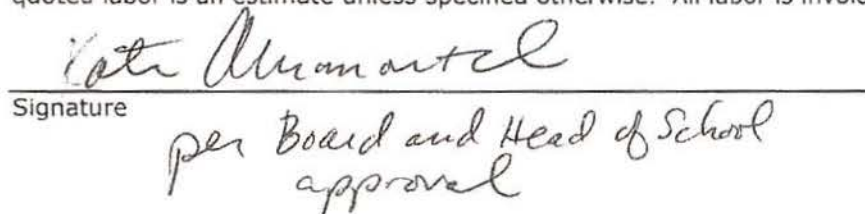 quoted labor is an estimate unless specified otherwise. All labor is invoi
Signature
per Board and Head of School
approval